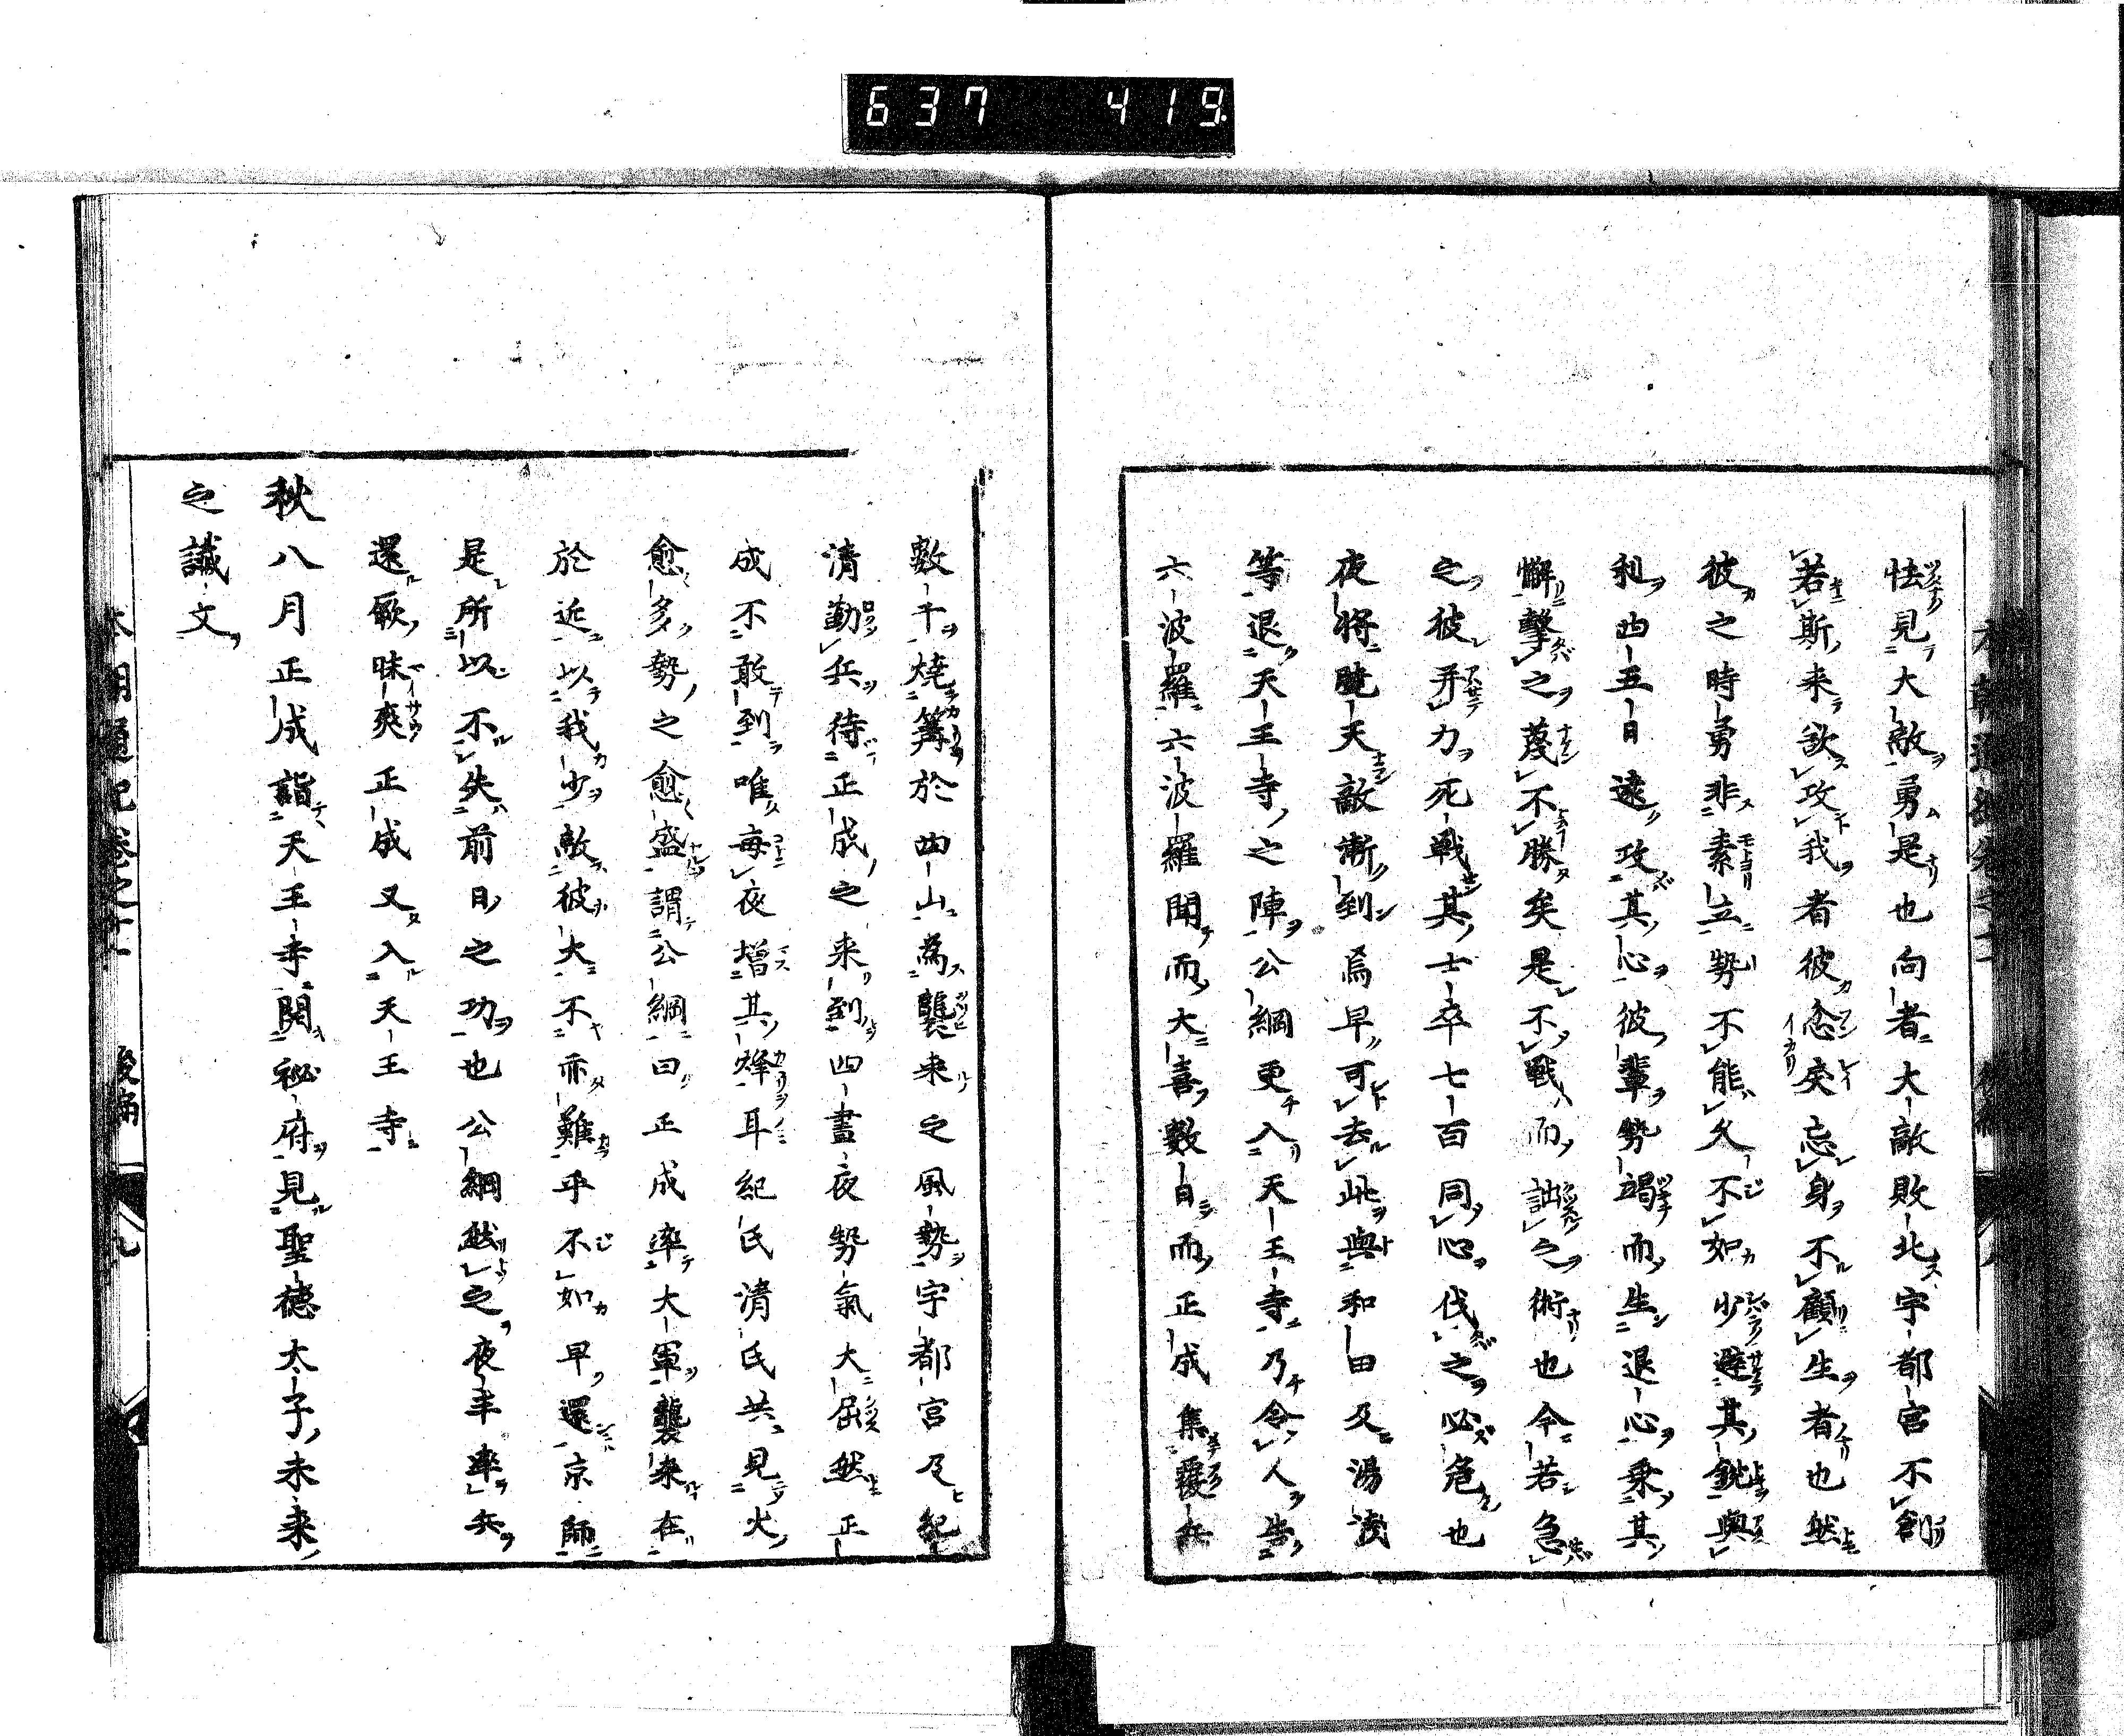 637 419
怯見大敵勇是也向者大敵敗北宇都宮不劊
若斯来欲攻我者彼忿戾忘身不顧生者也然
彼之時勇非素立勢不能久不如少避其銳與
利四五日遠攻其心彼輩勢竭而生退心乗其
懈擊之蔑不勝矣是不戰而詘之術也今若急
之彼并力死戰其士卒七百同心伐之必危也
夜将曉天敵漸到焉早可去此與和田及湯淺
等退天王寺之陣公綱更入天王寺乃令人告
六波羅六波羅聞而大喜數日而正成集霰兵
數千燒篝於四山為襲来之風勢宇都宮及紀
清勤兵待正成之来到四晝夜勢氣大屈然正
成不敢到唯每夜增其烽耳紀氏清氏共見火
愈多勢之愈盛謂公綱曰正成率大軍襲来在
於近以我少敵彼大不亦難乎不如早還京師
是所以不失前日之功也公綱然之夜半率兵
還厥昧爽正成又入天王寺
秋八月正成詣天王寺閱祕府見聖德太子未来
之讖文
本朝通紀卷之十一 後編 九